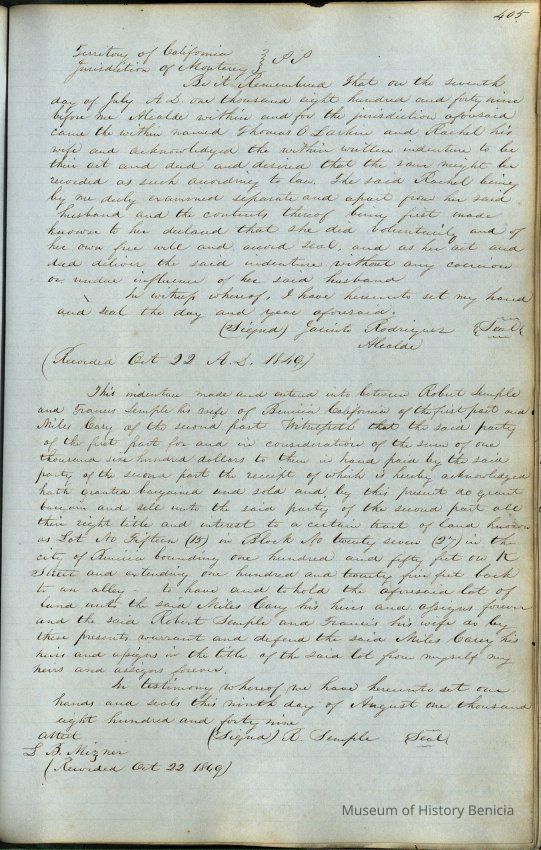 405
Territory of California } SS
Jurisdiction of Monterey }
Be it Remembered That on the seventh
day of July A.D. one thousand eight hundred and forty nine
before me Alcalde within and for the jurisdiction aforesaid
came the within named Thomas O Larkin and Rachel his
wife and acknowledged the within written indenture to be
their act and deed and desired that the same might be
recorded as such according to law. The said Rachel being
by me duly examined separate and apart from her said
husband and the contents thereof being first made
known to her declared that she did voluntarily and of
her own free will and accord seal, and as her act and
deed deliver the said indenture without any coercion
or undue influence of her said husband
In witness whereof, I have hereunto set my hand
and seal the day and year aforesaid.
(Signed) Jacinto Rodriguez Seal
Alcalde
(Recorded Oct 22 A.D. 1849)
This indenture made and entered into between Robert Semple
and Francis Semple his wife of Benicia California of the first part and
Miles Cary of the second part Witnesseth that the said party
of the first part for and in consideration of the sum of one
thousand six hundred dollars to them in hand paid by the said
party of the second part the receipt of which is hereby acknowledged
hath granted bargained and sold and by this present do grant
bargain and sell unto the said party of the second part all
their right title and interest to a certain tract of land known
as Lot No Fifteen (15) in Block No twenty seven (27) in the
city of Benicia bounding one hundred and fifty feet on K
Street and extending one hundred and twenty five feet back
to an alley - to have and to hold the aforesaid lot of
land unto the said Miles Cary his heirs and assigns forever
and the said Robert Semple and Francis his wife do by
these presents warrant and defend the said Miles Carey his
heirs and assigns in the title of the said lot from myself my
heirs and assigns forever.
In testimony whereof we have hereunto set our
hands and seals this ninth day of August one thousand
eight hundred and forty nine
attest (Signed) R. Semple Seal
L B. Mizner
(Recorded Oct 22 1849)
Museum of History Benicia